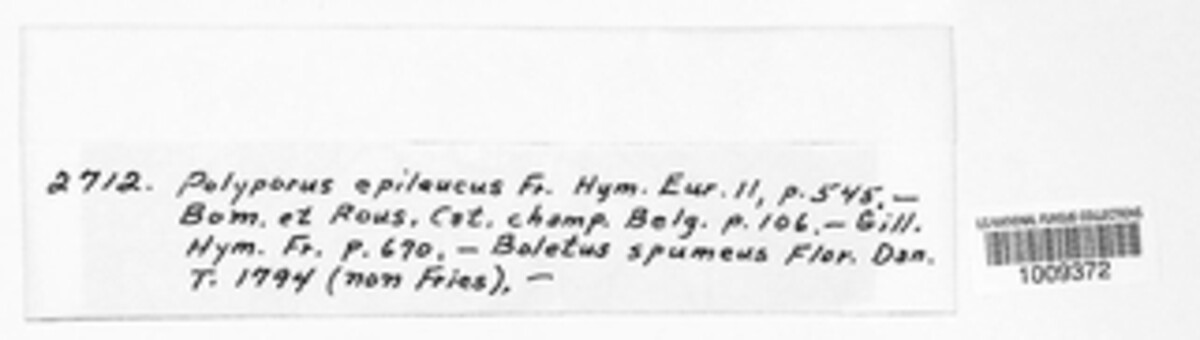 2712. Polyporus epileucus Fr. Hym. Eur. 11, p. 545. —
Bom. et Rous. Cat. champ. Belg. p. 106. — Gill.
Hym. Fr. p. 690. — Boletus spumeus Flor. Dan.
T. 1794 (non Fries). —
U.S. NATIONAL FUNGUS COLLECTIONS
1009372